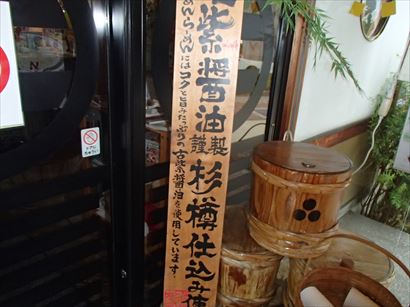 紫醤油
謹製
杉樽仕込み使
めんらーめんにはコクと旨みたっぷりの古紫醤油を使用しています!